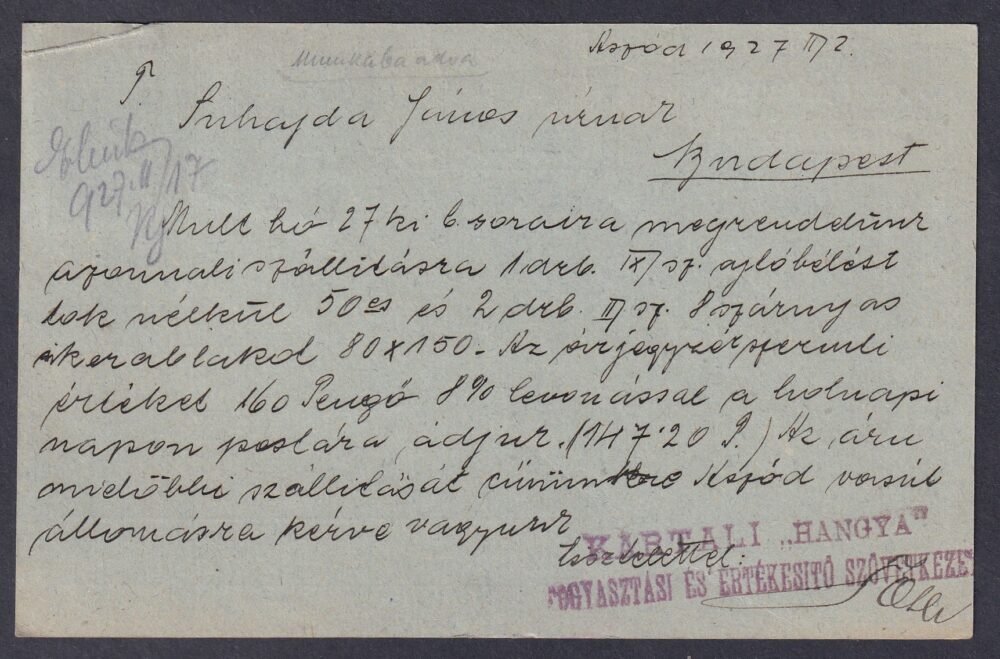 Munkába adva
Aszód 1927 III/2.
Suhajda János úrnak
Budapest
927. III/17
Mult hó 27 ki b. soraira megrendelünk
azonnali szállitásra 1 drb. IX/sz. ajtóbélést
tok nélkül 50es és 2 drb. II/sz. 8 szárnyas
ikerablakot 80x150 - Az árjegyzékszerinti
értéket 160 Pengő 8% levonással a holnapi
napon postára adjuk. (147·20 P.) Az áru
mielőbbi szállitását cimünkre Aszód vasút
állomásra kérve vagyunk
tisztelettel:
KARTALI „HANGYA”
FOGYASZTÁSI ÉS ÉRTÉKESITŐ SZÖVETKEZET